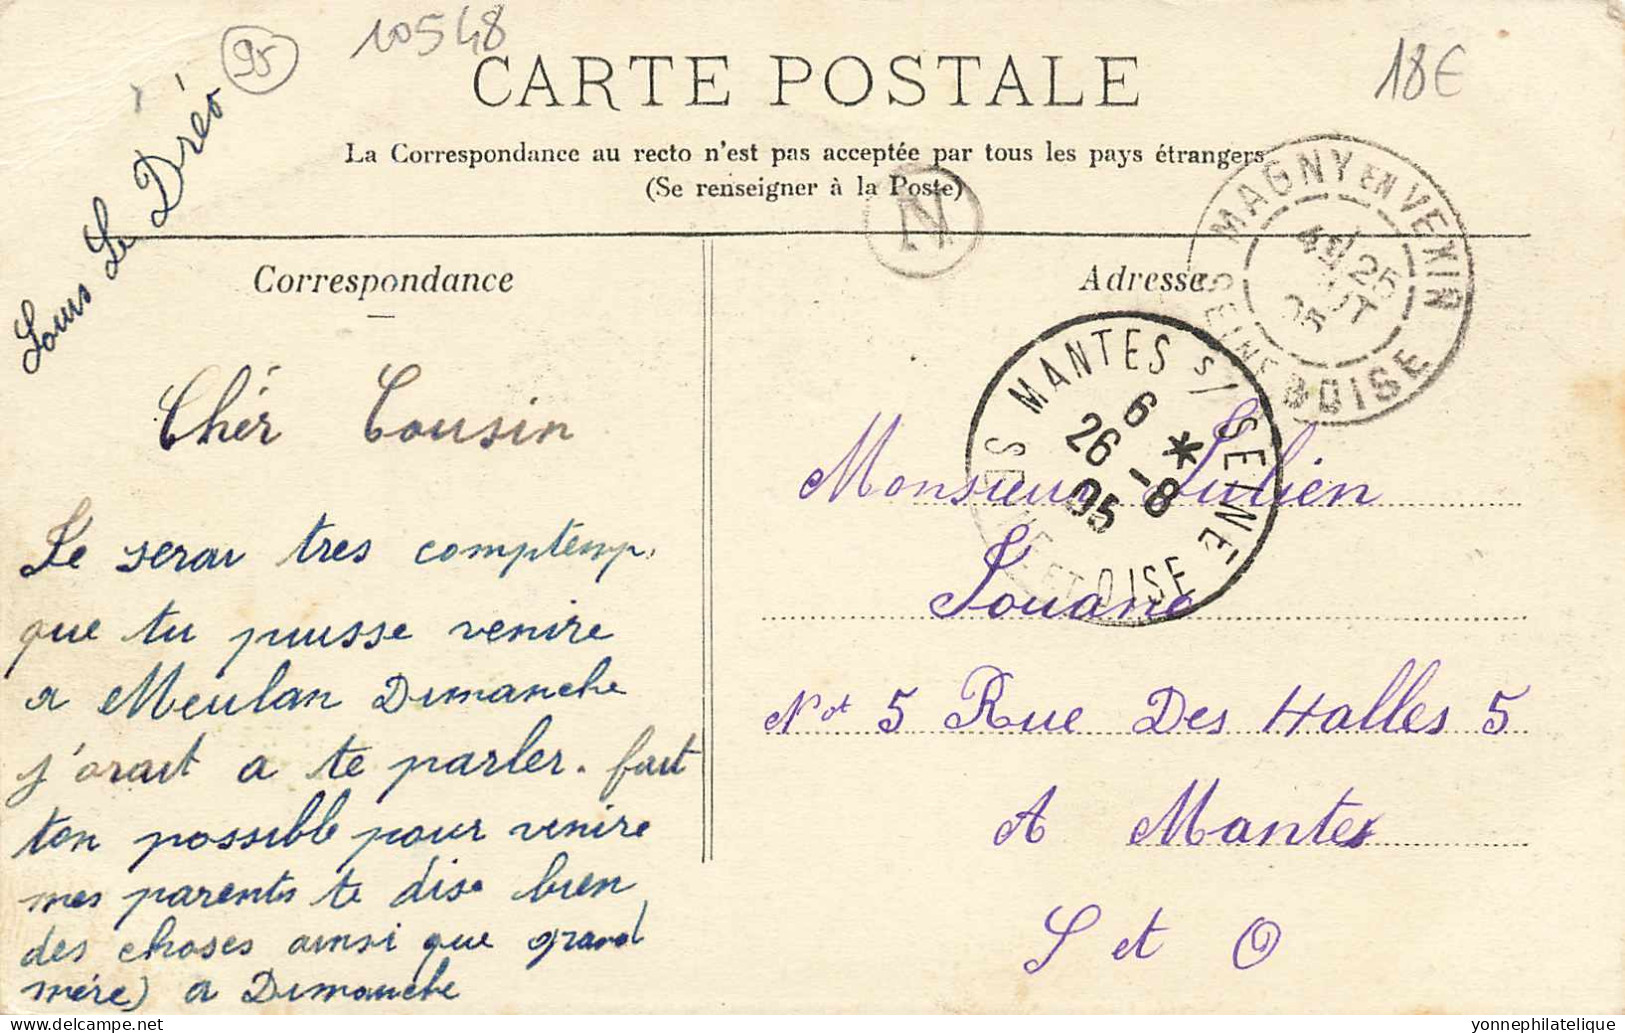 95
10548
18€
CARTE POSTALE
La Correspondance au recto n'est pas acceptée par tous les pays étrangers
(Se renseigner à la Poste)
N
MAGNY EN VEXIN
25
AOUT
05
SEINE & OISE
Correspondance
Adresse
Louis Le Dréo
MANTES S/ SEINE
6 *
26 -8
05
SEINE ET OISE
Chér Cousin
Le serai tres comptemp.
que tu puisse venire
a Meulan Dimanche
j'orait a te parler. fait
ton possible pour venire
mes parents te dise bien
des choses ainsi que grand
mére) a Dimanche
Monsieur Julien
Louane
Not 5 Rue Des Halles 5
A Mantes
S et O
yonnephilatelique